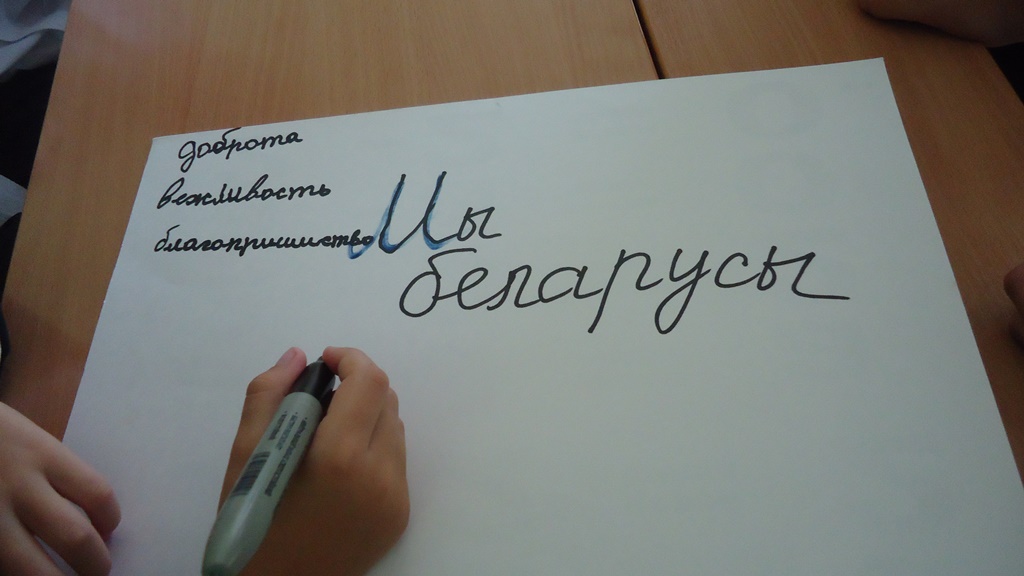 доброта
вежливость
Мы
беларусы